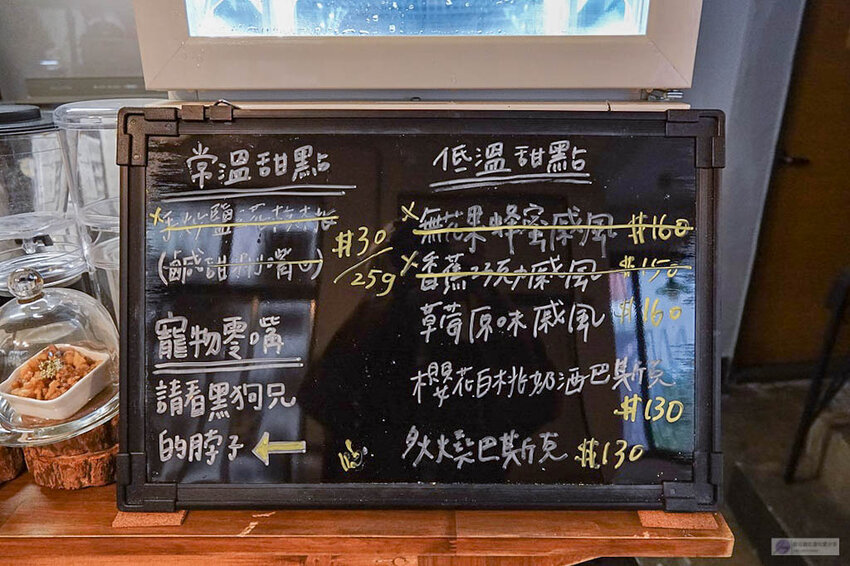 常溫甜點
(鹹甜涮嘴
#30/25g
寵物零嘴
請看黑狗兄
的脖子
低溫甜點
無花果蜂蜜戚風 #160
香蕉巧克力戚風 #150
草莓原味戚風 #160
櫻花白桃奶酒巴斯克
#130
炙燒巴斯克 #130